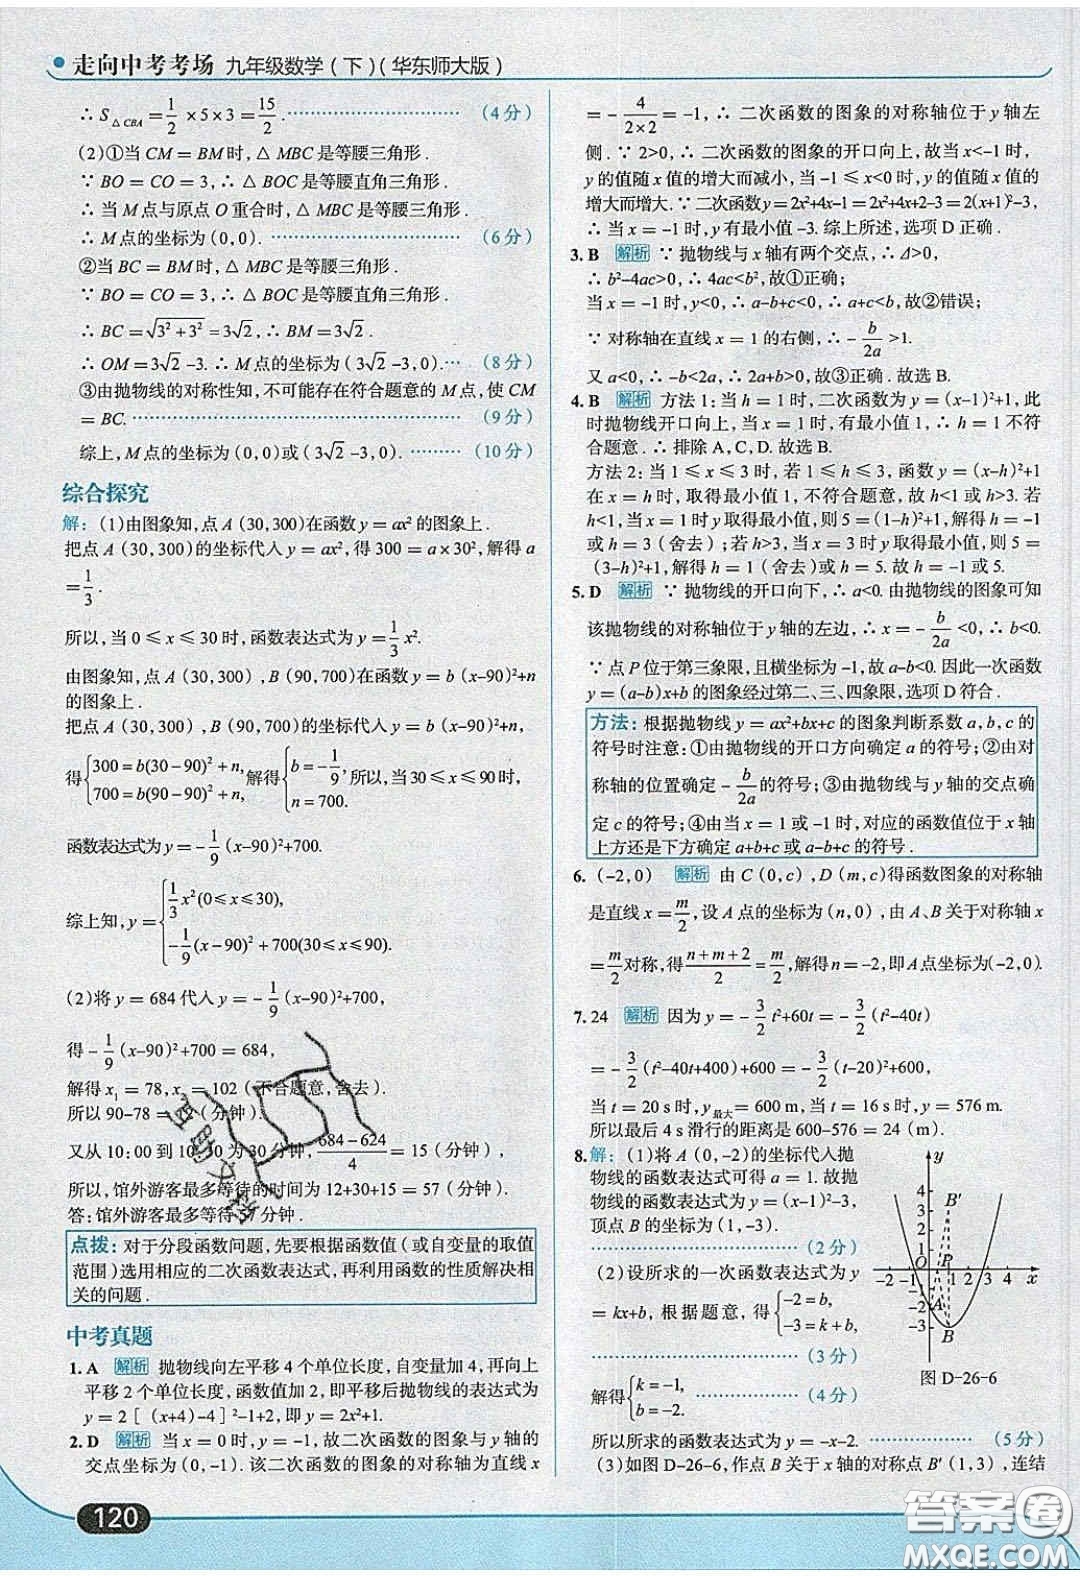 走向中考考场 九年级数学(下)(华东师大版)
∴ S△CBA = 1/2 ×5×3 = 15/2. (4分)
(2)①当 CM = BM 时, △MBC 是等腰三角形.
∵ BO = CO = 3, ∴ △BOC 是等腰直角三角形.
∴ 当 M 点与原点 O 重合时, △MBC 是等腰三角形.
∴ M 点的坐标为(0,0). (6分)
②当 BC = BM 时, △MBC 是等腰三角形.
∵ BO = CO = 3, ∴ △BOC 是等腰直角三角形.
∴ BC = √(3²+3²) = 3√2, ∴ BM = 3√2.
∴ OM = 3√2-3. ∴ M 点的坐标为(3√2-3,0). (8分)
③由抛物线的对称性知,不可能存在符合题意的 M 点,使 CM
= BC. (9分)
综上, M 点的坐标为(0,0)或(3√2-3,0). (10分)
综合探究
解: (1)由图象知,点 A(30,300)在函数 y = ax² 的图象上.
把点 A(30,300)的坐标代入 y = ax²,得 300 = a×30²,解得 a
= 1/3.
所以,当 0 ≤ x ≤ 30 时,函数表达式为 y = 1/3 x².
由图象知,点 A(30,300),B(90,700)在函数 y = b(x-90)²+n
的图象上.
把点 A(30,300),B(90,700)的坐标代入 y = b(x-90)²+n,
得{300 = b(30-90)²+n, 700 = b(90-90)²+n, 解得{b = -1/9, n = 700. 所以,当 30 ≤ x ≤ 90 时,
函数表达式为 y = -1/9 (x-90)²+700.
综上知, y = {1/3 x²(0≤x≤30), -1/9 (x-90)²+700(30≤x≤90).
(2)将 y = 684 代入 y = -1/9 (x-90)²+700,
得 -1/9 (x-90)²+700 = 684,
解得 x₁ = 78, x₂ = 102(不合题意,舍去).
所以 90-78 = 12(分钟).
又从 10:00 到 10:30 为 30 分钟, (684-624)/4 = 15(分钟),
所以,馆外游客最多等待的时间为 12+30+15 = 57(分钟).
答:馆外游客最多等待 57 分钟.
点拨: 对于分段函数问题,先要根据函数值(或自变量的取值
范围)选用相应的二次函数表达式,再利用函数的性质解决相
关的问题.
中考真题
1. A 解析 抛物线向左平移 4 个单位长度,自变量加 4,再向上
平移 2 个单位长度,函数值加 2,即平移后抛物线的表达式为
y = 2[(x+4)-4]²-1+2,即 y = 2x²+1.
2. D 解析 当 x = 0 时, y = -1,故二次函数的图象与 y 轴的
交点坐标为(0,-1).该二次函数的图象的对称轴为直线 x
= -4/(2×2) = -1, ∴ 二次函数的图象的对称轴位于 y 轴左
侧. ∵ 2>0, ∴ 二次函数的图象的开口向上,故当 x<-1 时,
y 的值随 x 值的增大而减小,当 -1 ≤ x<0 时,y 的值随 x 值的
增大而增大. ∵ 二次函数 y = 2x²+4x-1 = 2x²+4x+2-3 = 2(x+1)²-3,
∴ 当 x = -1 时, y 有最小值 -3. 综上所述,选项 D 正确.
3. B 解析 ∵ 抛物线与 x 轴有两个交点, ∴ Δ>0,
∴ b²-4ac>0, ∴ 4ac<b²,故①正确;
当 x = -1 时, y<0, ∴ a-b+c<0, ∴ a+c<b,故②错误;
∵ 对称轴在直线 x = 1 的右侧, ∴ -b/2a >1.
又 a<0, ∴ -b<2a, ∴ 2a+b>0,故③正确.故选 B.
4. B 解析 方法 1:当 h = 1 时,二次函数为 y = (x-1)²+1,此
时抛物线开口向上,当 x = 1 时,y 有最小值 1, ∴ h = 1 不符
合题意. ∴ 排除 A,C,D.故选 B.
方法 2:当 1 ≤ x ≤ 3 时,若 1 ≤ h ≤ 3,函数 y = (x-h)²+1
在 x = h 时,取得最小值 1,不符合题意,故 h<1 或 h>3.若
h<1,当 x = 1 时 y 取得最小值,则 5 = (1-h)²+1,解得 h = -1
或 h = 3(舍去);若 h>3,当 x = 3 时 y 取得最小值,则 5 =
(3-h)²+1,解得 h = 1(舍去)或 h = 5.故 h = -1 或 5.
5. D 解析 ∵ 抛物线的开口向下, ∴ a<0.由抛物线的图象可知
该抛物线的对称轴位于 y 轴的左边, ∴ x = -b/2a <0, ∴ b<0.
∵ 点 P 位于第三象限,且横坐标为 -1,故 a-b<0.因此一次函数
y = (a-b)x+b 的图象经过第二、三、四象限,选项 D 符合.
方法: 根据抛物线 y = ax²+bx+c 的图象判断系数 a,b,c 的
符号时注意:①由抛物线的开口方向确定 a 的符号;②由对
称轴的位置确定 -b/2a 的符号;③由抛物线与 y 轴的交点确
定 c 的符号;④由当 x = 1 或 -1 时,对应的函数值位于 x 轴
上方还是下方确定 a+b+c 或 a-b+c 的符号.
6. (-2,0) 解析 由 C(0,c),D(m,c)得函数图象的对称轴
是直线 x = m/2,设 A 点的坐标为(n,0),由 A、B 关于对称轴 x
= m/2 对称,得 (n+m+2)/2 = m/2,解得 n = -2,即 A 点坐标为(-2,0).
7. 24 解析 因为 y = -3/2 t²+60t = -3/2 (t²-40t)
= -3/2 (t²-40t+400)+600 = -3/2 (t-20)²+600,
当 t = 20 s 时, y最大 = 600 m,当 t = 16 s 时, y = 576 m.
所以最后 4 s 滑行的距离是 600-576 = 24(m).
8. 解: (1)将 A(0,-2)的坐标代入抛
物线的函数表达式可得 a = 1.故抛
物线的函数表达式为 y = (x-1)²-3,
顶点 B 的坐标为(1,-3).
(2分)
(2)设所求的一次函数表达式为 y
= kx+b,根据题意,得{-2 = b, -3 = k+b,
(3分)
解得{k = -1, b = -2. (4分)
所以所求的函数表达式为 y = -x-2. (5分)
(3)如图 D-26-6,作点 B 关于 x 轴的对称点 B′(1,3),连结
y
4
3
2
1
B′
P
-2 -1 O 1 2 3 4 x
-1
-2
-3
A
B
图 D-26-6
120
互助文答
答案圈
MXQE.COM